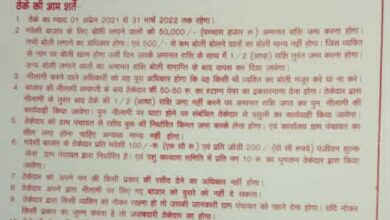 ठेके की आम शर्ते-
1 ठेके का म्याद 01 अप्रेल 2021 से 31 मार्च 2022 तक होगा।
2 मवेशी बाजार के लिए बोली लगाने वालों की 50,000/- (पचास हजार रू.) अमानत राशि जमा करना होगा।
तभी बोली लगाने का अधिकार होगा। एवं 500/- से कम बोली बोलने वालों का बोली मान्य नहीं होगा। जिस व्यक्ति
के नाम पर बोली खत्म होगा उसी दिन उसके अमानत राशि के साथ में 1/2 (आधा) राशि तुरन्त जमा करना होगा।
एवं बाकी बोली लगाने वालों का अमानत राशि बोली समाप्ति के बाद वापस कर दिया जावेगा।
3 नीलामी बचने वाले अधिकारी को यह पूरा अधिकार होगा कि वह किसी भी व्यक्ति का बोली मंजूर करे या ना करे।
4 बाजार की नीलामी समाप्ति के बाद ठेकेदार को 50-50 रू. का स्टाम्प पेपर का इकरारनामा देना होगा। ठेकेदार द्वारा
नीलामी के तुरंत बाद ठेके की 1/2 (आधा) राशि जमा नहीं करने पर अमानत राशि जप्त कर पुनः नीलामी की
कार्यवाही किया जावेगा। पुनः नीलामी पर घाटा होने पर संबंधित ठेकेदार से वसूली का कार्यवाही किया जावेगा।
5 ठेकेदार को ग्राम पंचायत से रसीद बुक की निर्धारित किमत जमा करके लेना होगा। एवं कार्यालय ग्राम पंचायत का
सील लगा होना चाहिए अन्यथा मान्य नहीं होगा।
6 मवेशी बाजार के ठेकेदार प्रति मवेशी 100/- (एक सौ रू.) एवं प्रति जोडी 200/- (दो सौ रूपये) पंजीयन शुल्क
लेना ग्राम पंचायत द्वारा निर्धारित है। एवं पशु कल्याण समिति में प्रति नग 10 रू का भुगतान ठेकेदार द्वारा किया
जावेगा।
7 ठेकेदार को अपने मन की किसी प्रकार की रसीद देने का अधिकार नहीं होगा।
8 ठेकेदार अपने द्वारा नीलामी पर लिए गए बाजार को दुसरे को नही दे सकता।
9 ठेकेदार किसी दुसरे व्यक्ति को नौकर रखना हो तो उसकी जानकारी ग्राम पंचायत को पहले देना होगा। यदि नौकर
किसी प्रकार का जुल्म करता है तो जवाबदारी ठेकेदार का होगा।